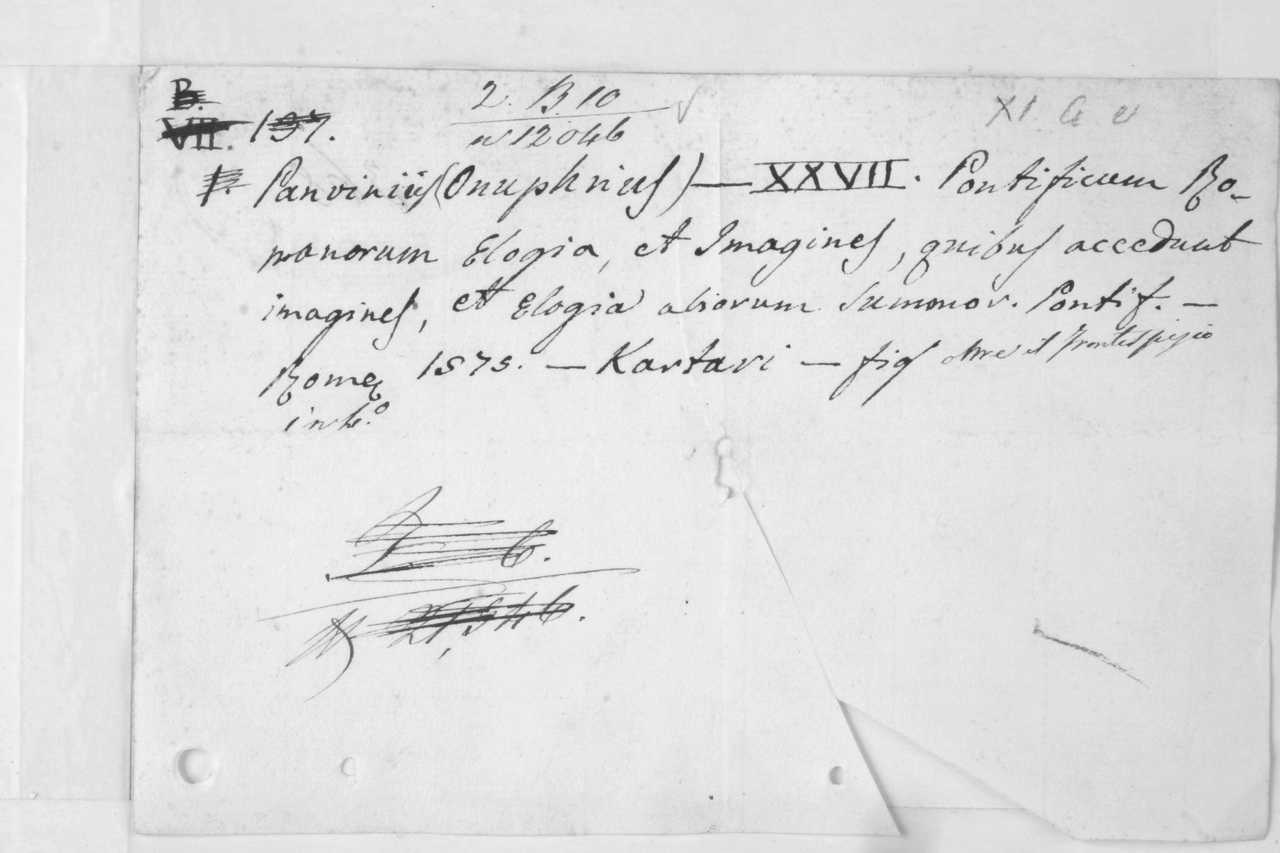 B.
VII. 137.
2. B 10
n 12046
XI. G
Panvinius (Onuphrius) — XXVII. Pontificum Ro-
manorum Elogia, et Imagines, quibus accedunt
imagines, et Elogia aliorum Summor. Pontif. —
Rome 1575. — Kartari — fig oltre il frontespizio
in 4.º
6.
N 21,546.